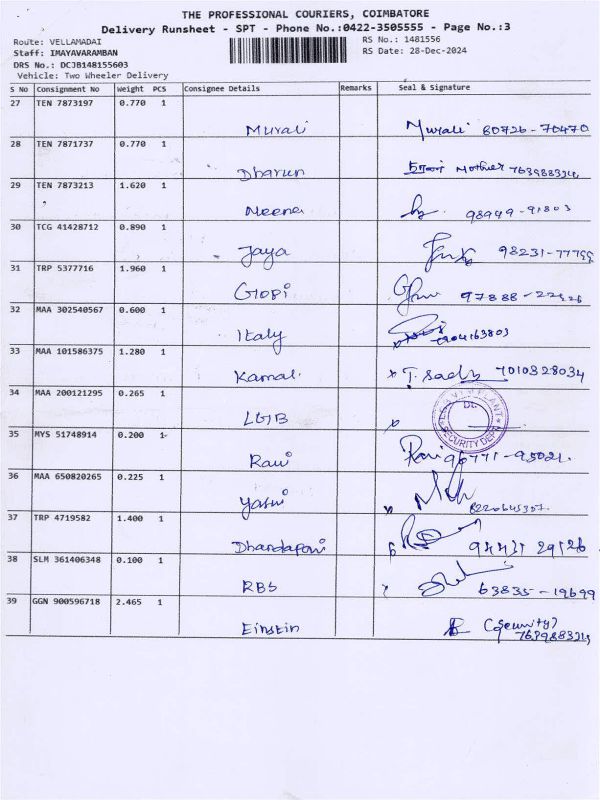 THE PROFESSIONAL COURIERS, COIMBATORE
Delivery Runsheet - SPT - Phone No.:0422-3505555 - Page No.:3
Route: VELLAMADAI
RS No.: 1481556
Staff: IMAYAVARAMBAN
RS Date: 28-Dec-2024
DRS No.: DCJB148155603
Vehicle: Two Wheeler Delivery
S No Consignment No Weight PCS Consignee Details Remarks Seal & Signature
27 TEN 7873197 0.770 1
Murali Murali 80726-70470
28 TEN 7871737 0.770 1
Dharun Mother
29 TEN 7873213 1.620 1
Meena 98949-91803
30 TCG 41428712 0.890 1
Jaya 98231-77799
31 TRP 5377716 1.960 1
Gopi 97888-22926
32 MAA 302540567 0.600 1
Italy 7904163803
33 MAA 101586375 1.280 1
Kamal T. Sady 7010328034
34 MAA 200121295 0.265 1
LGB SECURITY DEPT
35 MYS 51748914 0.200 1
Ravi Ravi 96771-95021.
36 MAA 650820265 0.225 1
Yasini 8220645307
37 TRP 4719582 1.400 1
Dhandapani 94431 29126
38 SLM 361406348 0.100 1
RBS 63835-19699
39 GGN 900596718 2.465 1
Einstin (Security)